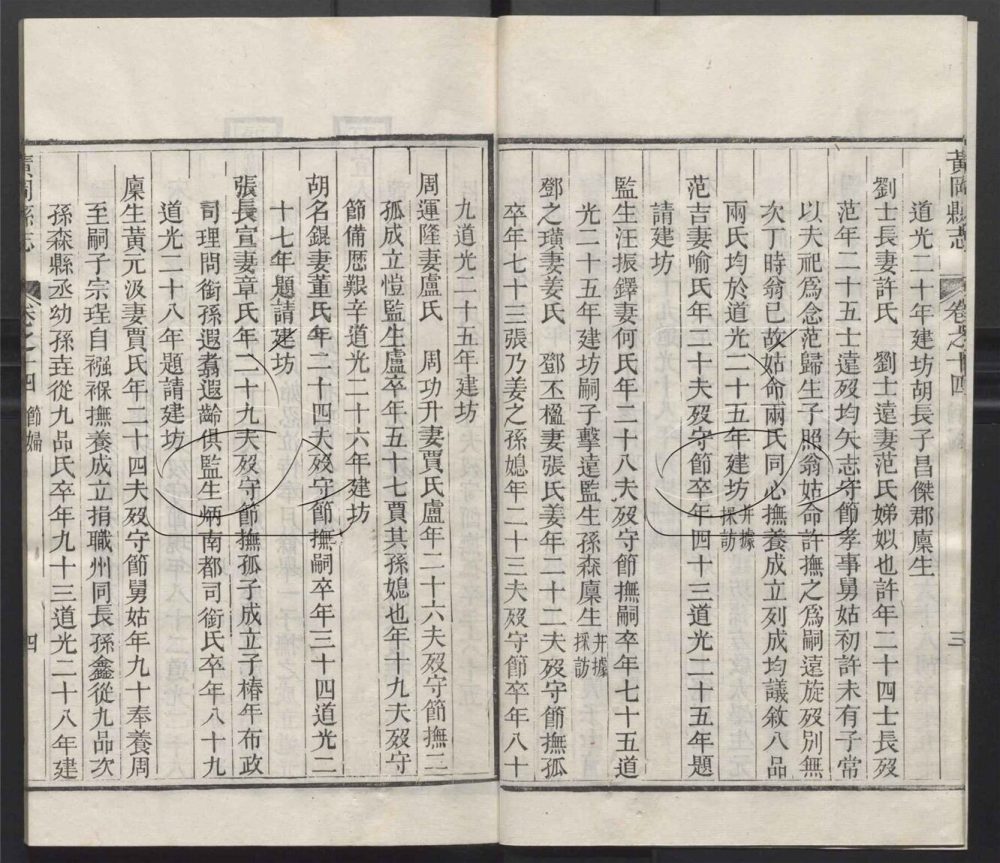 黃岡縣志 卷之十四 三
道光二十年建坊胡長子昌傑郡廩生
劉士長妻許氏 劉士遠妻范氏娣姒也許年二十四士長歿
范年二十五士達歿均矢志守節孝事舅姑初許未有子常
以夫祀爲念范歸生子照翁姑命許撫之爲嗣遠旋歿別無
次丁時翁已故姑命兩氏同心撫養成立列成均議敘八品
兩氏均於道光二十五年建坊 幷據採訪
范吉妻喻氏年二十夫歿守節卒年四十三道光二十五年題
請建坊
監生汪振鐸妻何氏年二十八夫歿守節撫嗣卒年七十五道
光二十五年建坊嗣子擊遠監生孫森廩生 幷據採訪
鄧之璜妻姜氏 鄧丕楹妻張氏姜年二十二夫歿守節撫孤
卒年七十三張乃姜之孫媳年二十三夫歿守節卒年八十
九道光二十五年建坊
周運隆妻盧氏 周功升妻賈氏盧年二十六夫歿守節撫二
孤成立愷監生盧卒年五十七賈其孫媳也年十九夫歿守
節備歷艱辛道光二十六年建坊
胡名錕妻董氏年二十四夫歿守節撫嗣卒年三十四道光二
十七年題請建坊
張長宣妻章氏年二十九夫歿守節撫孤子成立子椿年布政
司理問銜孫遐翥遐齡俱監生炳南都司銜氏卒年八十九
道光二十八年題請建坊
廩生黃元汲妻賈氏年二十四夫歿守節舅姑年九十奉養周
至嗣子宗珵自襁褓撫養成立捐職州同長孫鑫從九品次
孫森縣丞幼孫垚從九品氏卒年九十三道光二十八年建
黃岡縣志 卷之十四 節婦 四